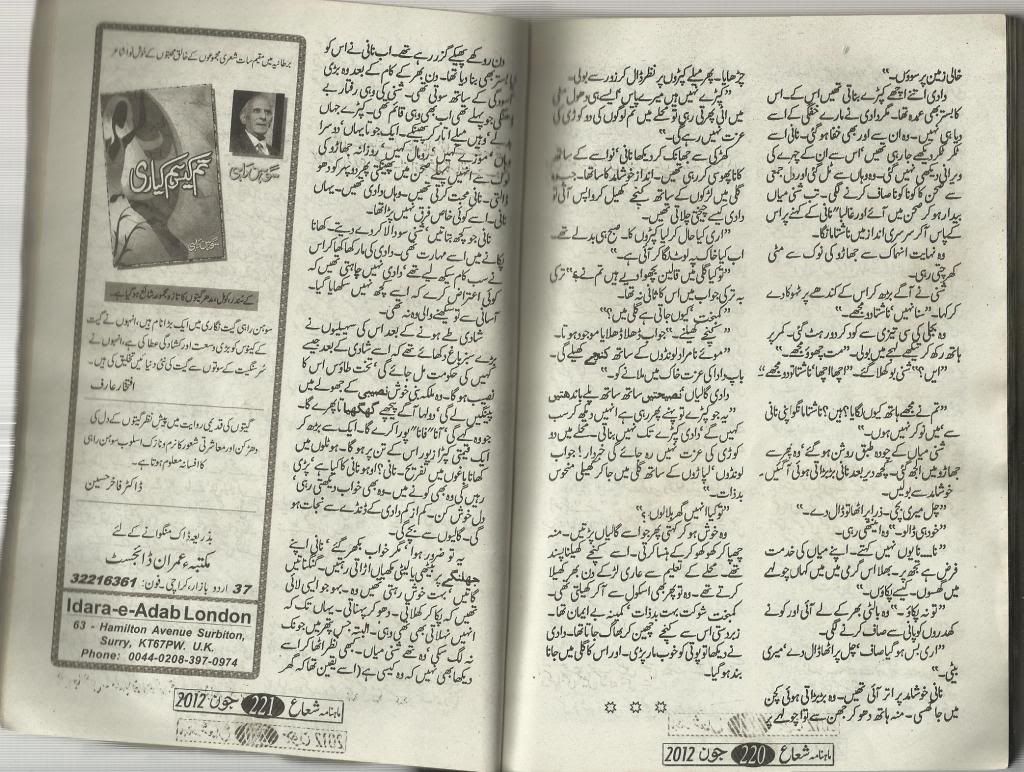 خالی زمین پر سوؤں۔"
دادی اتنے اچھے کپڑے بناتی تھیں اس کے۔ اس
کا بستر بھی عمدہ تھا۔ مگر دادی نے مارے خفگی کے اسے
دیا ہی نہیں۔ وہ ان سے اور بھی خفا ہو گئی۔ نانی اسے
ٹکر ٹکر دیکھے جا رہی تھیں، اس نے ان کے چہرے کی
ویرانی دیکھی نہیں گئی۔ وہ وہاں سے ٹل گئی اور دل جمعی
سے صحن کا کونا کونا صاف کرنے لگی۔ تب شنی میاں
بیدار ہو کر صحن میں آئے اور غالبا" نانی کے کہنے پر اس
کے پاس آ کر سرسری انداز میں ناشتا مانگا۔
وہ نہایت انہماک سے جھاڑو کی نوک سے مٹی
کھرچتی رہی۔
شنی نے آگے بڑھ کر اس کے کندھے پر ٹھوکا دے
کر کہا۔ "سنا نہیں، ناشتا دو مجھے۔"
وہ بجلی کی سی تیزی سے کود کر دور ہٹ گئی۔ کمر پر
ہاتھ رکھ کر تیکھے لہجے میں بولی۔ "مت چھوؤ مجھے۔"
"ایں؟" شنی بوکھلا گئے۔ "اچھا اچھا، ناشتا تو دو مجھے۔"
"تم نے مجھے ہاتھ کیوں لگایا؟ ہیں؟ ناشتا مانگو اپنی نانی
سے، میں نوکر نہیں ہوں۔"
شنی میاں کے چودہ طبق روشن ہو گئے، وہ پھر سے
جھاڑو میں الجھ گئی۔ کچھ دیر بعد نانی بڑبڑاتی ہوئی آئیں۔
خوشامد سے بولیں۔
"چل میری بچی۔ ذرا پراٹھا تو ڈال دے۔"
"خود ہی ڈالو۔" وہ اینٹھی رہی۔
"نا۔ نا یوں نہیں کہتے۔ اپنے میاں کی خدمت
فرض ہے تجھ پر۔ بھلا اس گرمی میں میں کہاں چولہے
میں گھسوں۔ کیسے پکاؤں۔"
"تو نہ پکاؤ۔" وہ بالٹی بھر کے لے آئی اور کونے
کھدروں کو پانی سے صاف کرنے لگی۔
"اری بس ہو گیا صاف، چل پراٹھا ڈال دے، میری
بیٹی۔"
نانی خوشامد پر اتر آئی تھیں۔ وہ بڑبڑاتی ہوئی کچن
میں جا گھسی۔ منہ ہاتھ دھو کر بھٹن سے توا چولہے پر
چڑھایا۔ پھر میلے کپڑوں پر نظر ڈال کر زور سے بولی۔
"کپڑے نہیں ہیں میرے پاس، ایسے ہی دھول مٹی
میں اٹی پھرتی رہی، تو محلے میں تم لوگوں کی دو کوڑی کی
عزت نہیں رہے گی۔"
کھڑکی سے جھانک کر دیکھا نانی، نواسے کے ساتھ
کانا پھوسی کر رہی تھیں۔ انداز خوشامد کا سا تھا۔ جب وہ
گلی میں لڑکوں کے ساتھ کنچے کھیل کر واپس آتی تو
دادی کیسے چیختی چلاتی تھیں۔
"اری کیا حال کر لیا کپڑوں کا۔ صبح ہی بدلے تھے۔
اب کیا خاک پہ لوٹ لگا کر آئی ہے۔"
"تو کیا گلی میں قالین بچھوا دیے ہیں تم نے؟" ترکی
بہ ترکی جواب میں اس کا ثانی نہ تھا۔
"کمبخت، کیوں جاتی ہے گلی میں؟"
"کنچے کھیلنے۔" جواب ڈھلا ڈھلایا موجود ہوتا۔
"موئے نامراد لونڈوں کے ساتھ کنچے کھیلے گی۔
باپ دادا کی عزت خاک میں ملانے کو۔"
دادی گالیاں نصیحتیں ساتھ ساتھ پلے باندھتیں
"یہ جو کپڑے تو پہنے پھر رہی ہے، انہیں دیکھ کر سب
کہیں گے، دادی کپڑے تک نہیں بناتی۔ محلے میں دو
کوڑی کی عزت نہیں رہ جائے گی خبردار! جواب
لونڈوں، لپاڑوں کے ساتھ گلی میں جا کر کھیلی منحوس
بدذات۔"
"تو کیا انہیں گھر بلا لوں؟"
وہ خوش ہو کر کہتی پھر جو اسے گالیاں پڑتیں۔ منہ
چھپا کر کھو کھو کر کے ہنسا کرتی۔ اسے کنچے کھیلنا پسند
تھے۔ محلے کے تعلیم سے عاری لڑکے دن بھر کھیلا
کرتے تھے۔ وہ تو پھر بھی اسکول سے آ کر کھیلتی تھی۔
کمبخت شوکت بہت بدذات، کمینہ بے ایمان تھا۔
زبردستی اس سے کنچے چھین کر بھاگ جاتا تھا۔ دادی
نے دیکھا تو پوتی کو خوب مار پڑی۔ اور اس کا گلی میں جانا
بند ہو گیا۔
☼ ☼ ☼
ماہنامہ شعاع 220 جون 2012
دن روکھے پھیکے گزر رہے تھے۔ اب نانی نے اس کو
بستر بھی بنا دیا تھا۔ دن بھر کے کام کے بعد وہ بڑی
آسودگی کے ساتھ سوتی تھی۔ شنی کی وہی رفتار بے
جو پہلے تھی اب بھی وہی قائم تھی۔ کپڑے جہاں
بدلے، وہیں میلے اتار کر پھینکے۔ ایک جوتا یہاں، دوسرا
وہاں، موزے کہیں، رومال کہیں، روزانہ جھاڑو کی
نوک سے انہیں صحن میں پھینکتی پھر دوپہر کو دھو
ڈالتی۔ نانی محبت کرتی تھیں۔ وہاں دادی تھیں۔ یہاں
نانی۔ اسے کوئی خاص فرق نہیں پڑا تھا۔
نانی جو کچھ بتاتیں، شنی سودا لا کر دے دیتے۔ کھانا
پکانے میں اسے مہارت تھی۔ دادی کی مار کھا کھا کر اس
نے سب کام سیکھ لیے تھے، دادی نہیں چاہتی تھیں کہ
کوئی اعتراض کرے کہ اسے کچھ نہیں سکھایا گیا۔
آسانی سے تو سیکھنے والی وہ نہ تھی۔
شادی طے ہونے کے بعد اس کی سہیلیوں نے
بڑے سبز باغ دکھائے تھے کہ اسے شادی کے بعد جیسے
کہیں کی حکومت مل جائے گی، تخت طاؤس اس کا
نصیب ہو گا۔ وہ ملکہ بنی خوش نصیبی کے جھولے میں
پینگیں لے گی، دولہا آگے پیچھے گھگھیاتا پھرے گا۔
جو وہ کہے گی، آناً فاناً پورا کرے گا۔ ایک سے بڑھ کر
ایک قیمتی کپڑا زیور اس کے تن پر ہو گا۔ ہوٹلوں میں
کھانا باغوں میں تفریح۔ نانی؟ اوہو نانی کا کیا ہے، پڑی
رہیں گی وہ بھی کونے میں۔ وہ بھی خواب دیکھتی رہی،
دل خوش کن۔ کم از کم دادی کے ڈنڈے سے نجات ہو
گی۔ گالیوں سے بچے گی۔
یہ تو ضرور ہوا، مگر خواب بکھر گئے، نانی اپنے
جھلنگے پر بیٹھی پالتی مکھیاں اڑاتی رہتیں۔ گنگناتیں
گاتیں، بہت خوش رہتی تھیں وہ۔ بہو جو ایسی لائی
تھیں کہ پکا کر کھلاتی۔ دھو کر پہناتی۔ یہاں تک کہ
انہیں نہلاتی بھی تھی وہی۔ البتہ جس پتھر میں جونک
نہ لگ سکی وہ تھے شنی میاں۔ کبھی نظر اٹھا کر اسے
دیکھا بھی نہیں کہ وہ کیسی ہے (اسے یقین تھا کہ گھر
برطانیہ میں مقیم سات شعری مجموعوں کے خالق محبتوں کے خوش نوا شاعر
سوہن راہی
کے سُندر، کومل، مدھر گیتوں کا تازہ مجموعہ شائع ہو گیا ہے۔
سوہن راہی گیت نگاری میں ایک بڑا نام ہیں، انہوں نے گیت
کے کینوس کو بڑی وسعت اور کشادگی عطا کی ہے، انہوں نے
سُر سنگیت کے سوتوں سے گیت کی نئی دنیائیں تخلیق کی ہیں۔
افتخار عارف
گیتوں کی قدیمی روایت میں پیش نظر گیتوں کے دل کی
دھڑکن اور معاشرتی شعور کا نرم و نازک اسلوب سوہن راہی
کا افسانہ معلوم ہوتا ہے۔
ڈاکٹر فاخر حسین
بذریعہ ڈاک منگوانے کے لئے
مکتبہء عمران ڈائجسٹ
37 اردو بازار، کراچی۔ فون: 32216361
Idara-e-Adab London
63 - Hamilton Avenue Surbiton,
Surry, KT67PW. U.K.
Phone: 0044-0208-397-0974
ماہنامہ شعاع 221 جون 2012